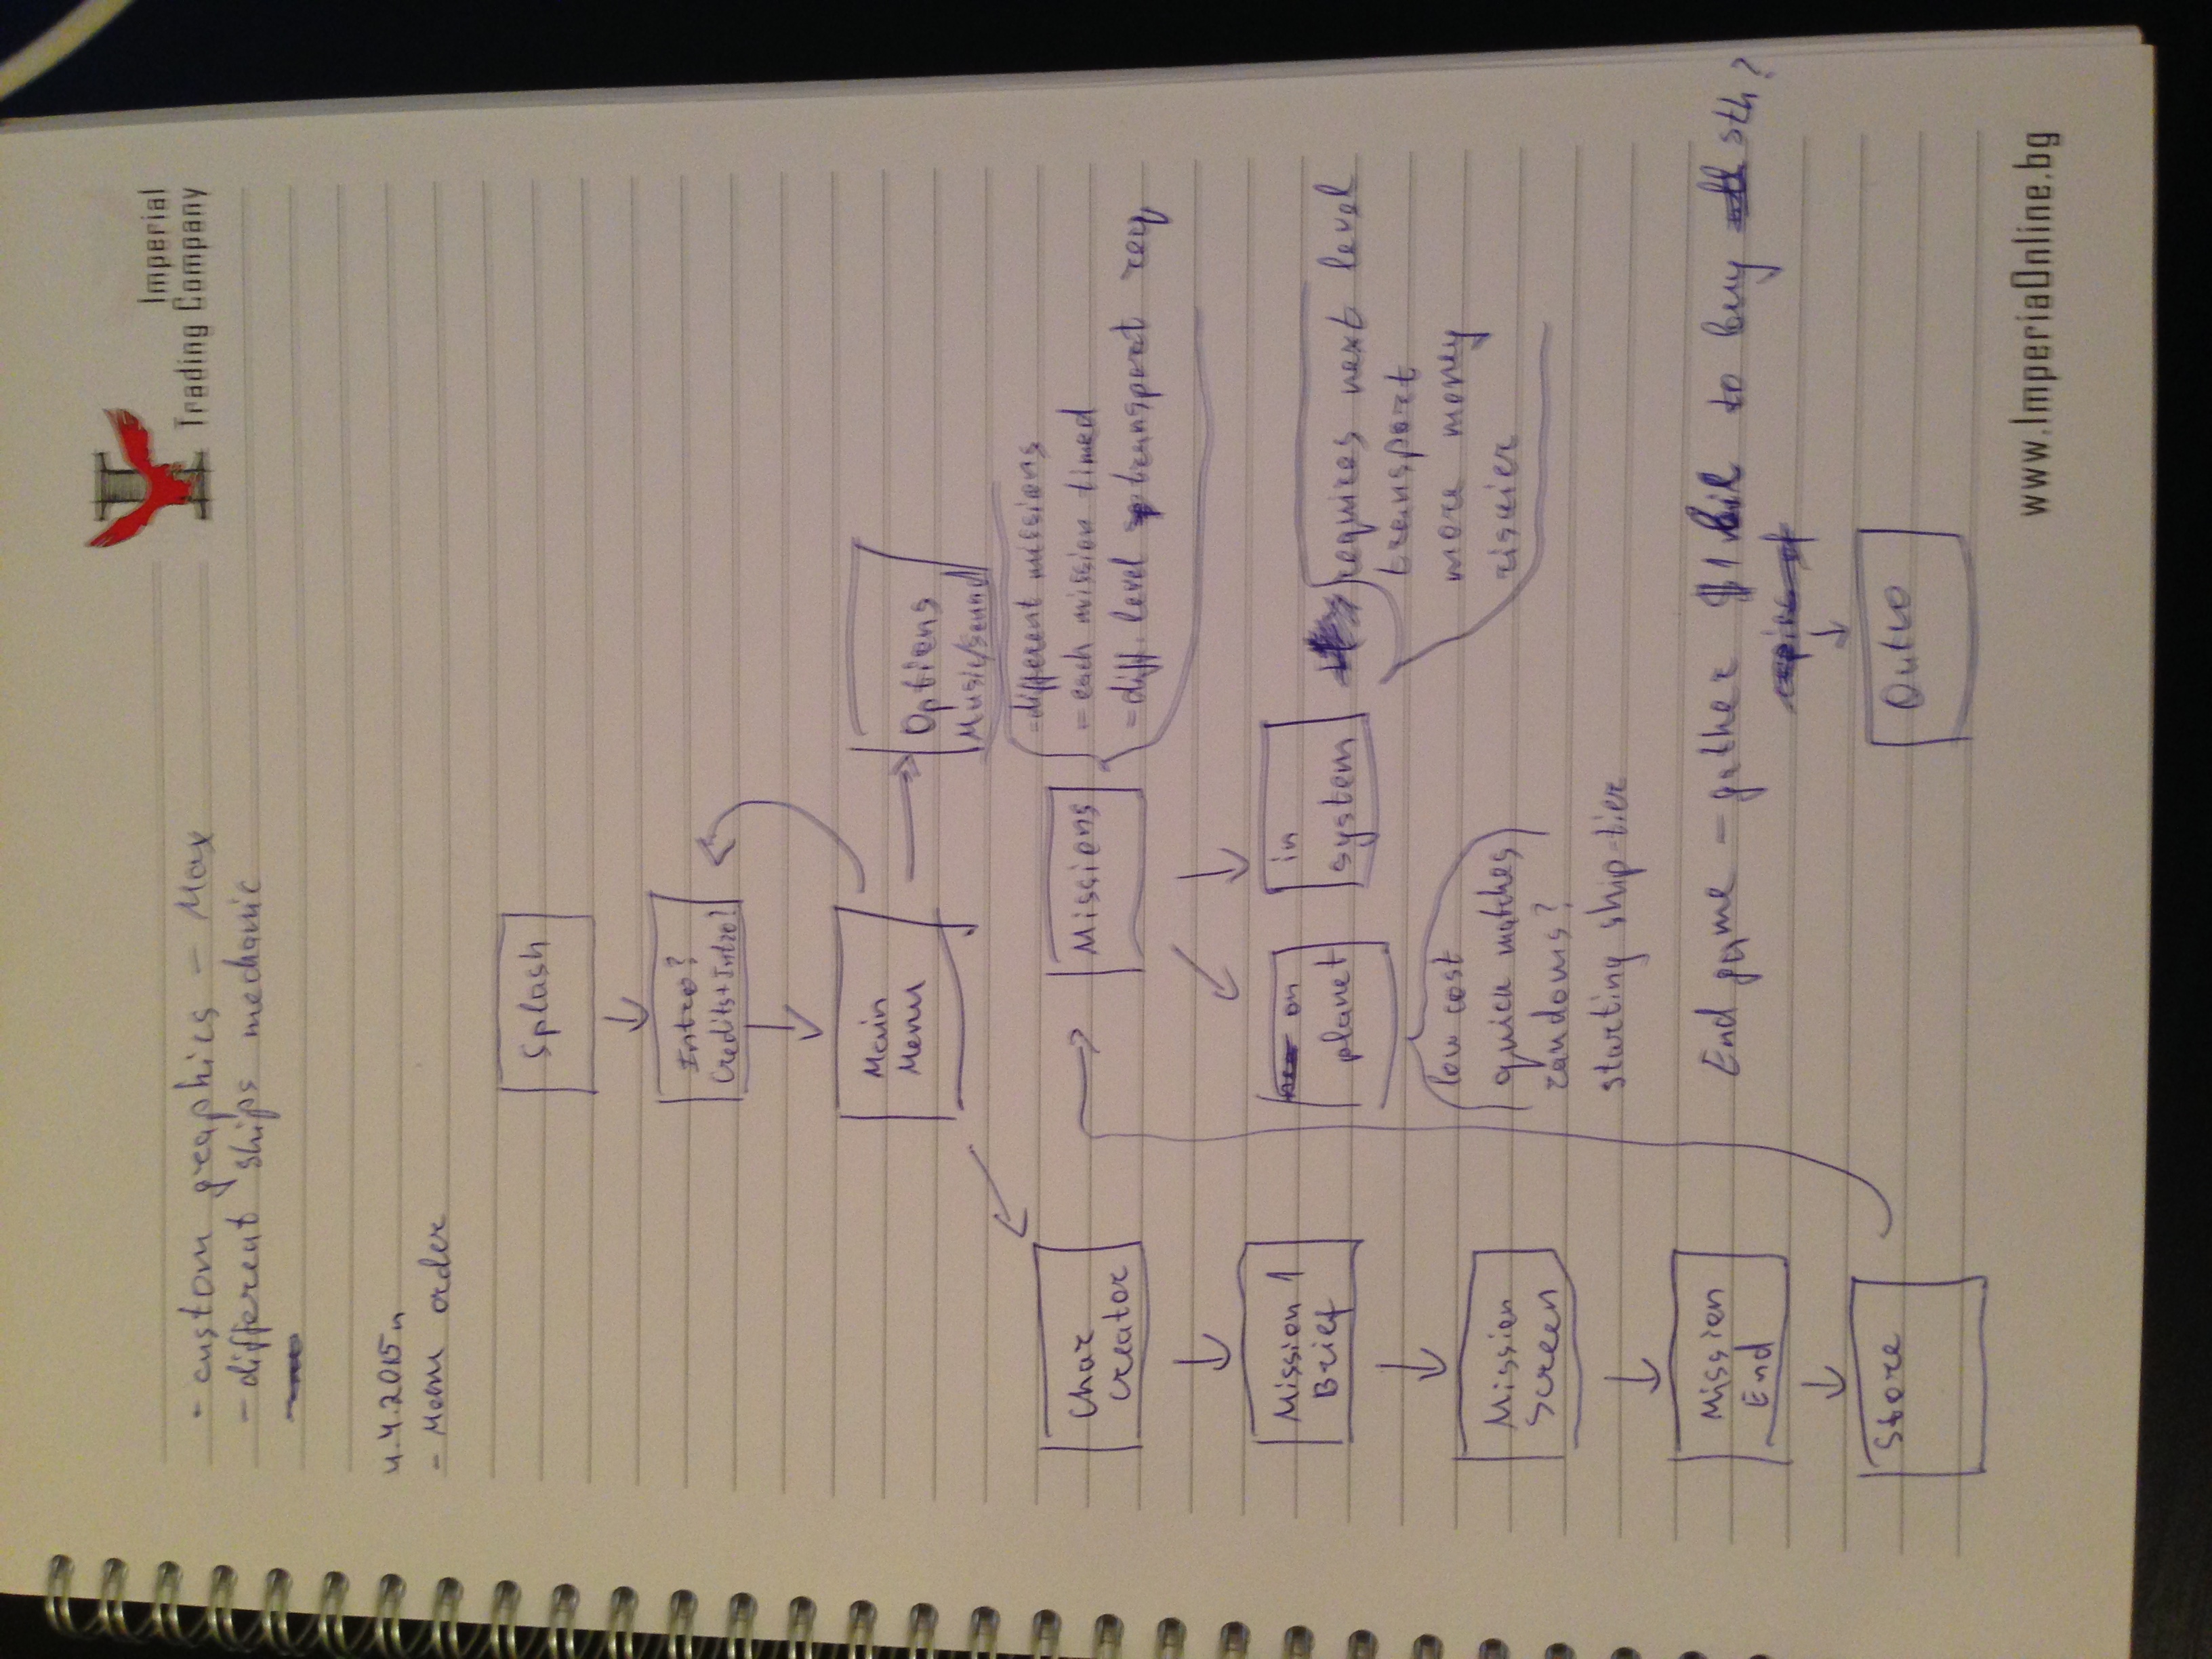 Imperial
Trading Company
- custom graphics - Max
- different ships mechanic
4.4.2015
- Menu order
Splash
Intro?
Credits+Intro?
Main
Menu
Options
Music/Sound
Char
Creator
Missions
- different missions
- each mission timed
- diff. level transport req
Mission 1
Brief
on
planet
in
system
requires next level
transport
more money
riskier
low cost
quick matches
randoms?
starting ship-tier
Mission
Screen
Mission
End
End game - gather $1 bil to buy sth?
Store
Outro
www.ImperiaOnline.bg